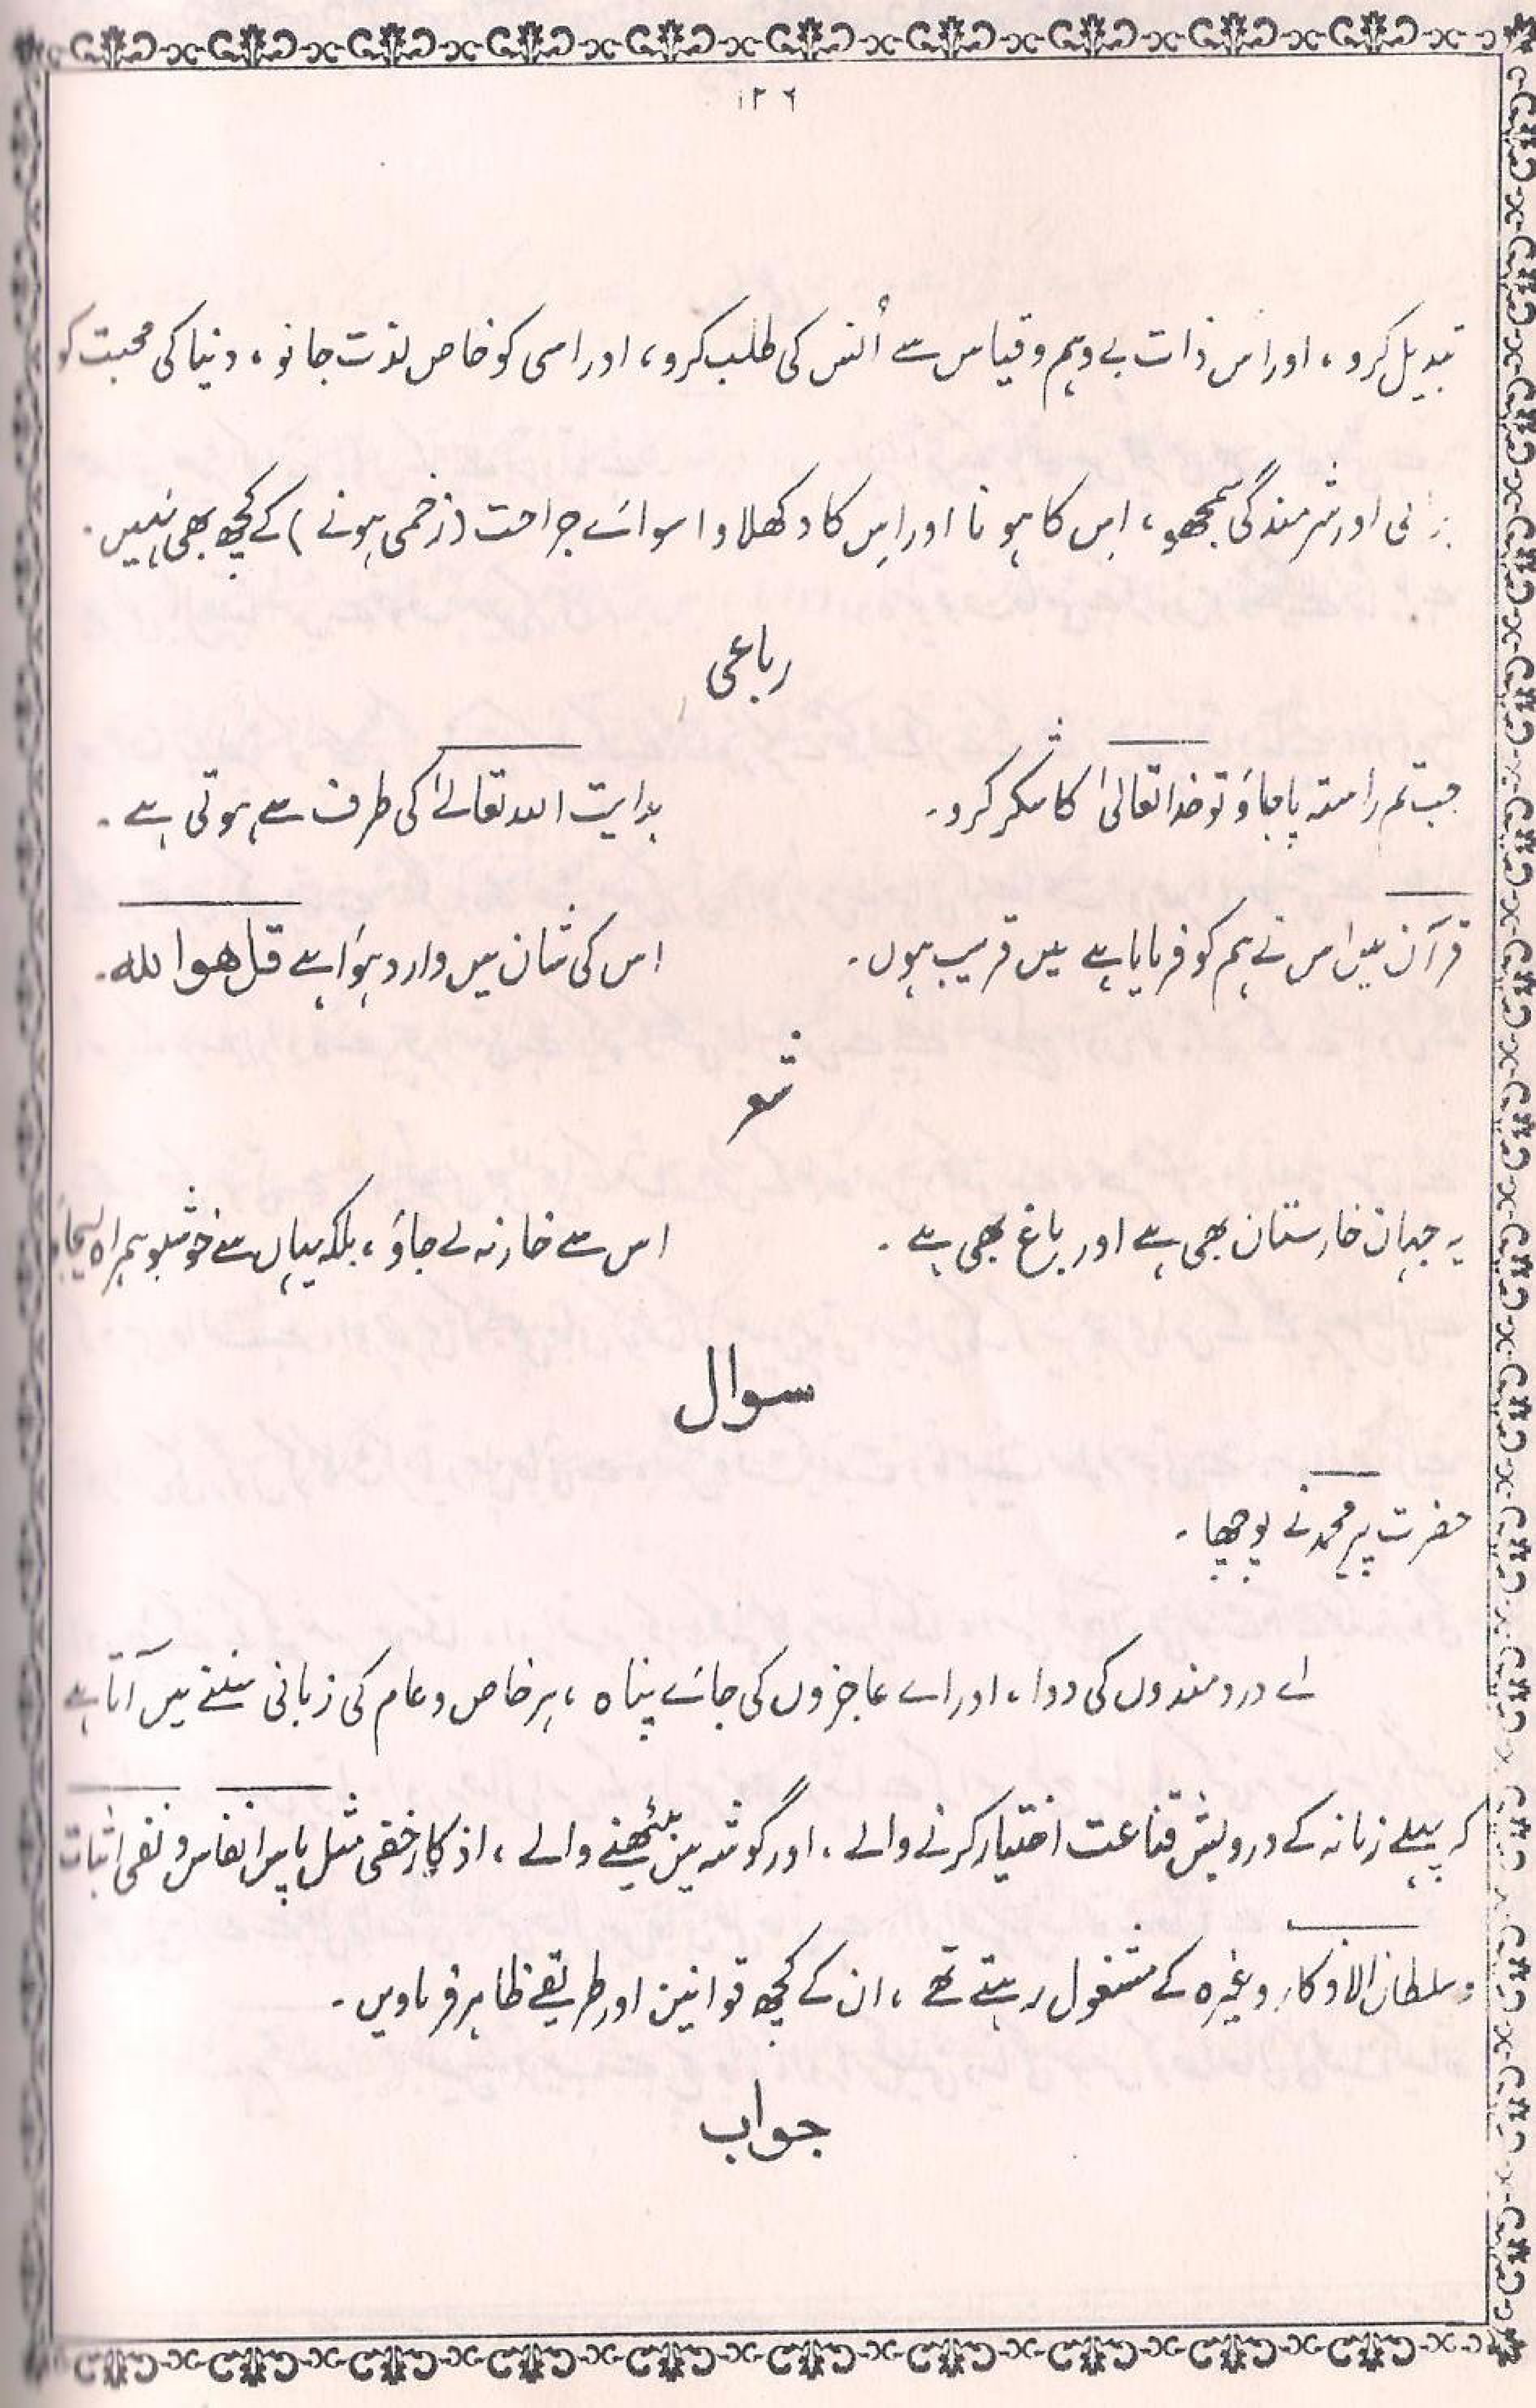 ۱۲۶
تبدیل کرو، اور اس ذات بے وہم و قیاس سے اُنس کی طلب کرو، اور اسی کو خاص لذت جانو، دنیا کی محبت کو
اور شرمندگی سمجھو، اس کا ہونا اور اِس کا دکھلاوا سوائے جراحت (زخمی ہونے) کے کچھ بھی نہیں۔
رباعی
جب تم راستہ پا جاؤ تو خدا تعالیٰ کا شکر کرو۔ ہدایت اللہ تعالےٰ کی طرف سے ہوتی ہے۔
قرآن میں اس نے ہم کو فرمایا ہے میں قریب ہوں۔ اس کی شان میں وارد ہؤا ہے قل هوا لله۔
شعر
یہ جہان خارستان بھی ہے اور باغ بھی ہے۔ اس سے خار نہ لے جاؤ، بلکہ یہاں سے خوشبو ہمراہ لیجاؤ
سوال
حضرت پیر محمد نے پوچھا۔
اے دردمندوں کی دوا، اور اے عاجزوں کی جائے پناہ، ہر خاص و عام کی زبانی سننے میں آتا ہے
کہ پہلے زمانہ کے درویش قناعت اختیار کرنے والے، اور گوشہ میں بیٹھنے والے، اذکار خفی مثل پاس انفاس و نفی اثبات
و سلطان الاذکار وغیرہ کے مشغول رہتے تھے، ان کے کچھ قوانین اور طریقے ظاہر فرماویں۔
جواب